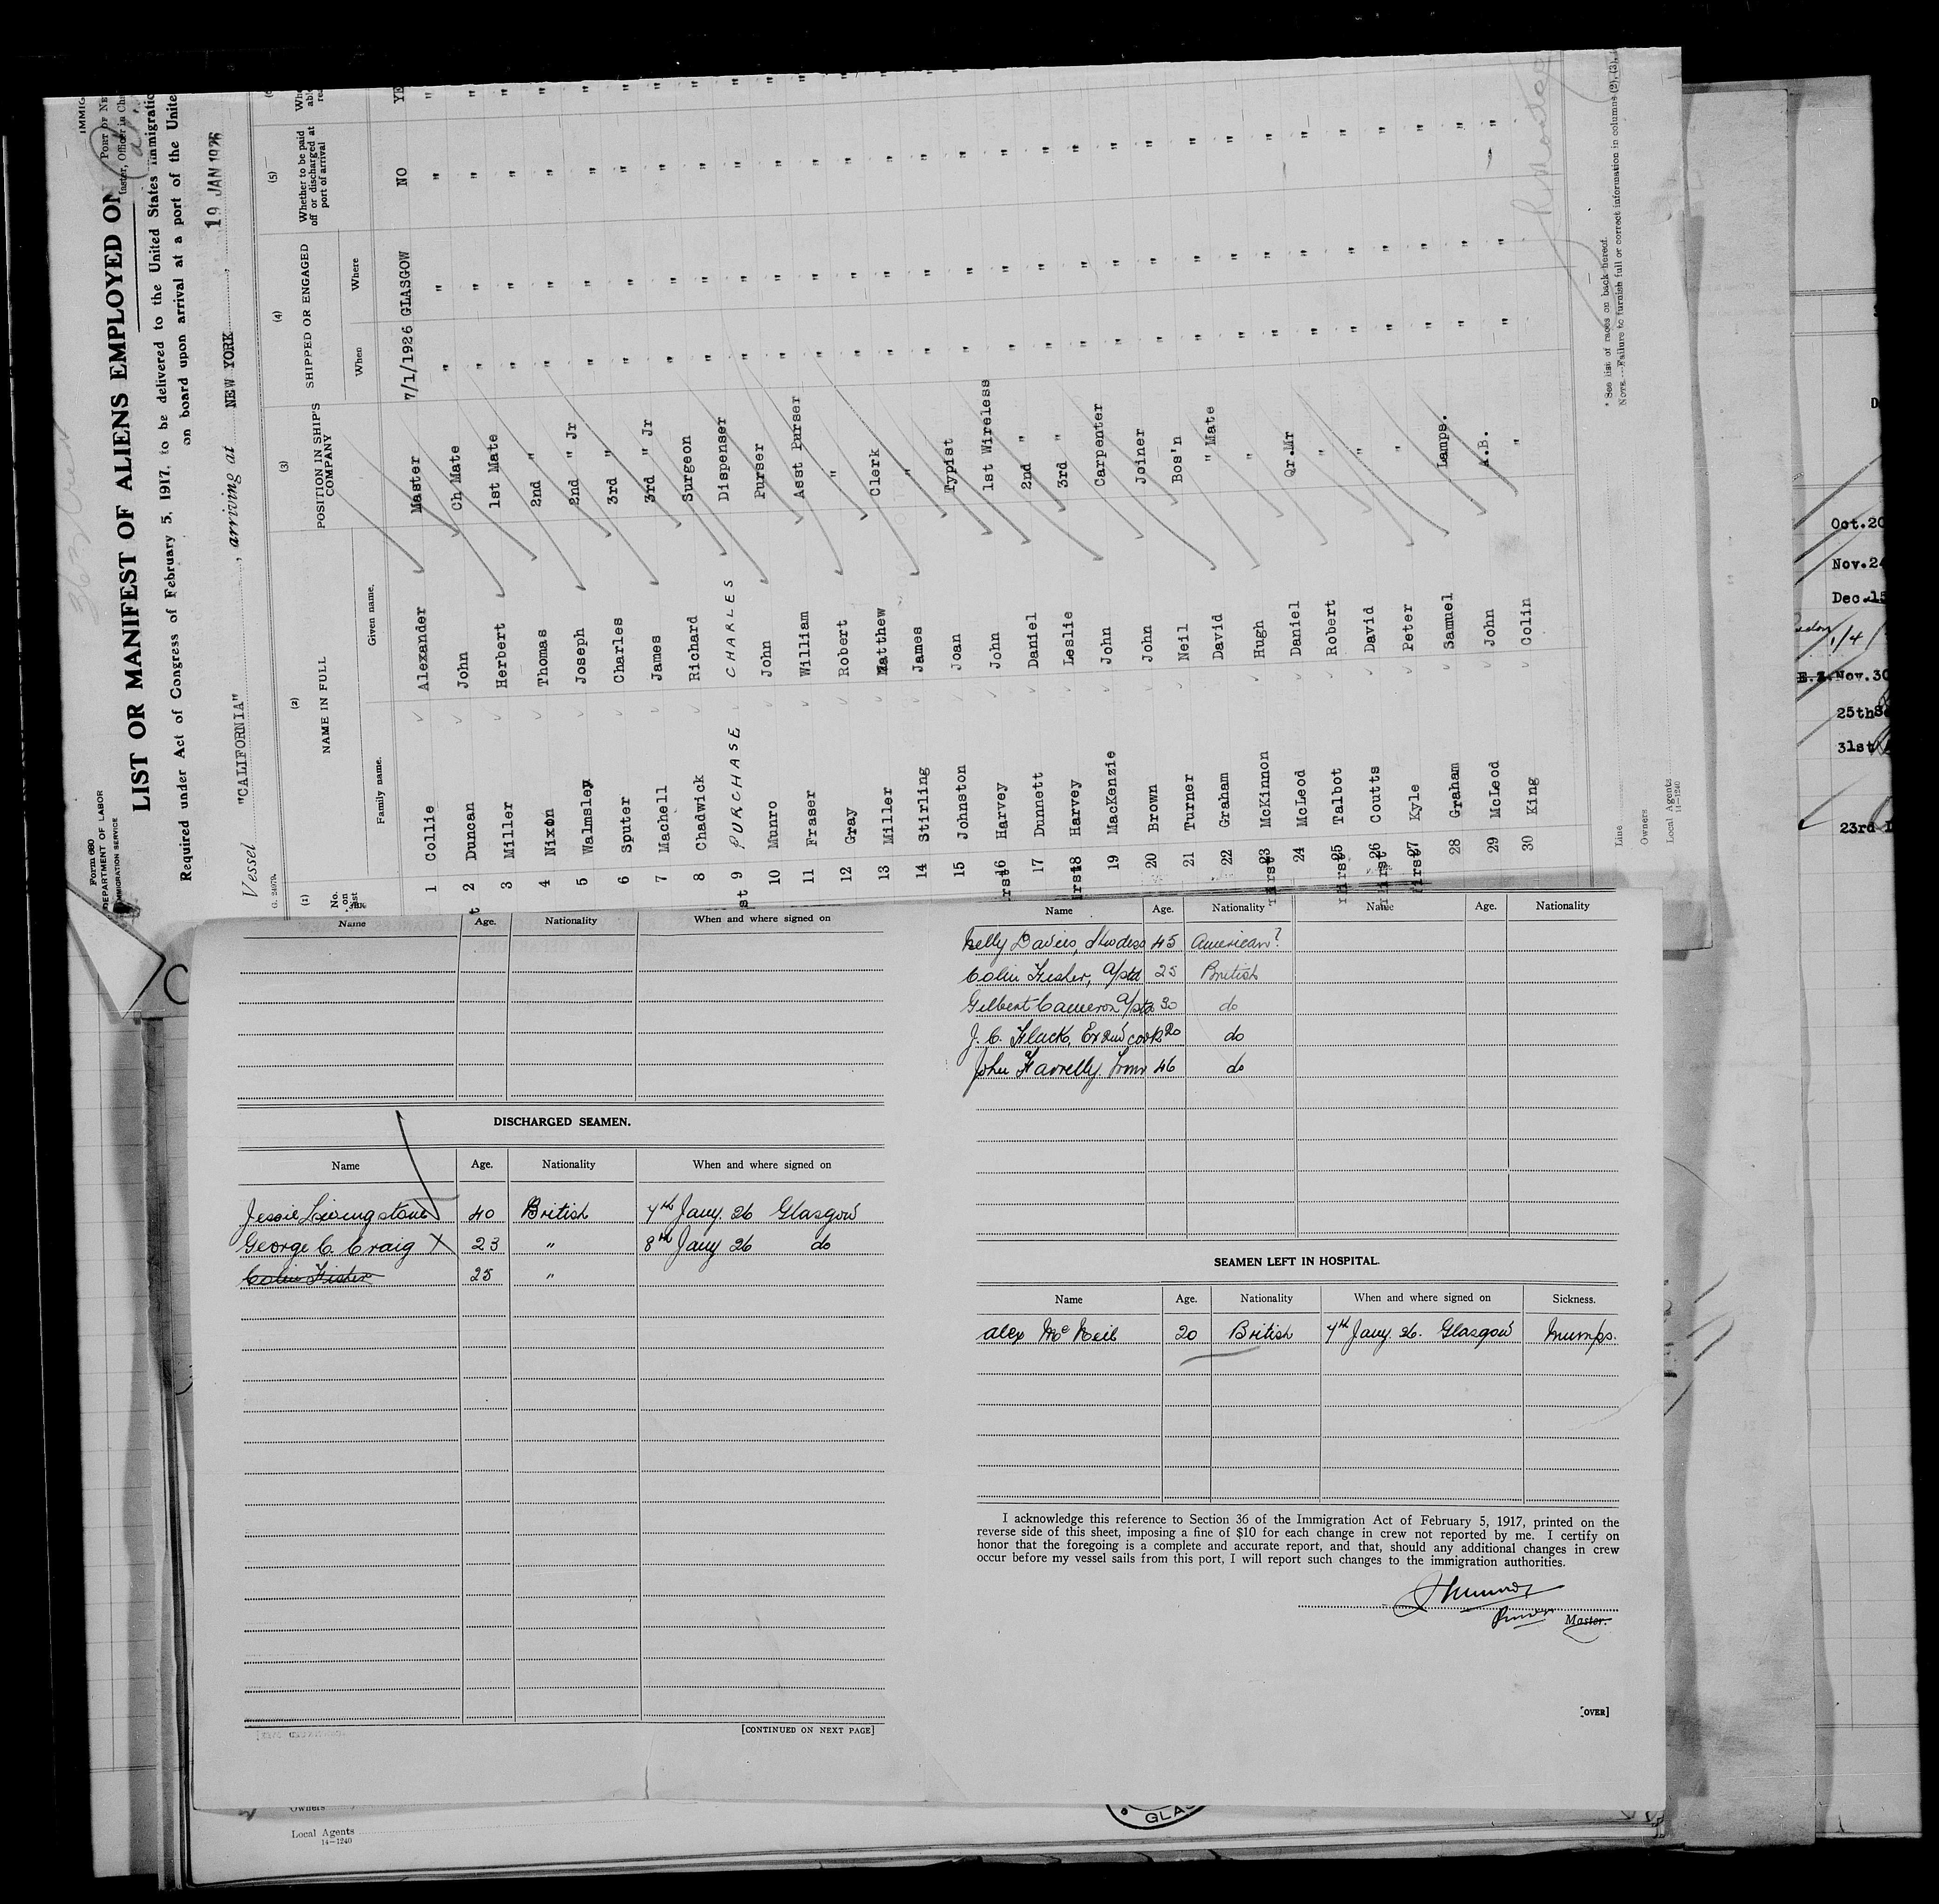 Form 680
DEPARTMENT OF LABOR
IMMIGRATION SERVICE
LIST OR MANIFEST OF ALIENS EMPLOYED ON
Required under Act of Congress of February 5, 1917, to be delivered to the United States Immigration
on board upon arrival at a port of the United
Vessel "CALIFORNIA", arriving at NEW YORK, 19 JAN 1926
(1) (2) (3) (4) (5)
No. on list NAME IN FULL POSITION IN SHIP'S COMPANY SHIPPED OR ENGAGED Whether to be paid off or discharged at port of arrival
Family name. Given name. When Where
1 Collie Alexander Master 7/1/1926 GLASGOW NO YE
2 Duncan John Ch Mate " " " "
3 Miller Herbert 1st Mate " " " "
4 Nixon Thomas 2nd " " " " "
5 Walmsley Joseph 2nd " Jr " " " "
6 Sputer Charles 3rd " " " " "
7 Machell James 3rd " Jr " " " "
8 Chadwick Richard Surgeon " " " "
9 PURCHASE CHARLES Dispenser " " " "
10 Munro John Purser " " " "
11 Fraser William Asst Purser " " " "
12 Gray Robert " " " " "
13 Miller Matthew Clerk " " " "
14 Stirling James " " " " "
15 Johnston Joan Typist " " " "
16 Harvey John 1st Wireless " " "
17 Dunnett Daniel 2nd " " " "
18 Harvey Leslie 3rd " " " "
19 MacKenzie John Carpenter " " "
20 Brown John Joiner " " "
21 Turner Neil Bos'n " " "
22 Graham David " Mate " " "
23 McKinnon Hugh " " " "
24 McLeod Daniel Qr.Mr " " "
25 Talbot Robert " " " "
26 Coutts David " " " "
27 Kyle Peter " " " "
28 Graham Samuel Lamps. " " "
29 McLeod John A.B. " " "
30 King Colin "
Line
Owners
Local Agents
14-1240
* See list of races on back hereof.
NOTE.—Failure to furnish full or correct information in columns (2), (3),
Name Age. Nationality When and where signed on
DISCHARGED SEAMEN.
Name Age. Nationality When and where signed on
Jessie Livingstone 40 British 7th Jany. 26 Glasgow
George C. Craig X 23 " 8th Jany 26 do
Colin Fisher 25 "
[CONTINUED ON NEXT PAGE]
Name Age. Nationality Name Age. Nationality
Nelly Davies, Stwdess 45 American?
Colin Fisher, a/std 25 British
Gilbert Cameron a/std 30 do
J. C. Flack, Ex 2nd cook 20 do
John Farrelly. Trmr 46 do
SEAMEN LEFT IN HOSPITAL.
Name Age. Nationality When and where signed on Sickness.
Alex McNeil 20 British 7th Jany. 26. Glasgow Mumps.
I acknowledge this reference to Section 36 of the Immigration Act of February 5, 1917, printed on the
reverse side of this sheet, imposing a fine of $10 for each change in crew not reported by me. I certify on
honor that the foregoing is a complete and accurate report, and that, should any additional changes in crew
occur before my vessel sails from this port, I will report such changes to the immigration authorities.
Purser Master.
[OVER]
Owners
Local Agents
14-1240
GLAS
Oct.20
Nov.24
Dec.15
1/4
Nov.30
25th
31st
23rd